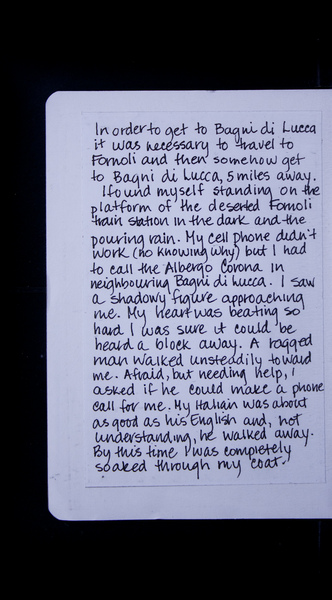 In order to get to Bagni di Lucca
it was necessary to travel to
Fornoli and then somehow get
to Bagni di Lucca, 5 miles away.
I found myself standing on the
platform of the deserted Fornoli
train station in the dark and the
pouring rain. My cell phone didn't
work (no knowing why) but I had
to call the Albergo Corona in
neighbouring Bagni di Lucca. I saw
a shadowy figure approaching
me. My heart was beating so
hard I was sure it could be
heard a block away. A ragged
man walked unsteadily toward
me. Afraid, but needing help, I
asked if he could make a phone
call for me. My Italian was about
as good as his English and, not
understanding, he walked away.
By this time I was completely
soaked through my coat.